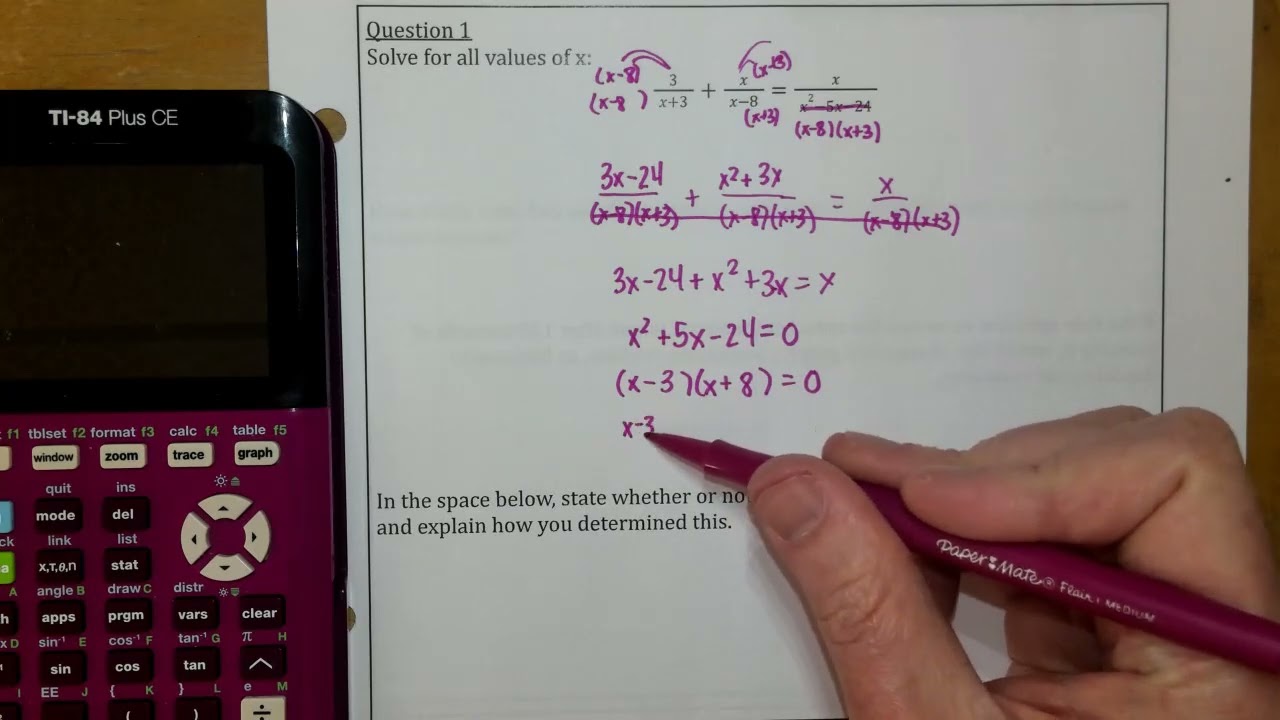 Question 1
Solve for all values of x:
(x-8) 3 + x (x+3) = x
(x-8) x+3 x-8 (x+3) x² - 5x - 24
(x-8)(x+3)
3x-24 + x²+3x = x
(x-8)(x+3) (x-8)(x+3) (x-8)(x+3)
3x-24+x²+3x=x
x²+5x-24=0
(x-3)(x+8)=0
x-3
In the space below, state whether or
and explain how you determined this.
Paper Mate® Flair, MEDIUM
TI-84 Plus CE
f1 tblset f2 format f3 calc f4 table f5
window zoom trace graph
quit ins
mode del
link list
x,T,θ,n stat
A angle B draw C distr
apps prgm vars clear
D sin⁻¹ E cos⁻¹ F tan⁻¹ G π H
sin cos tan ^
I EE J { K } L e M
, ( ) ÷